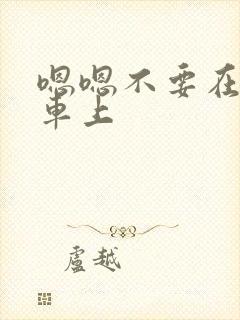 嗯嗯不要在
車上
盧越